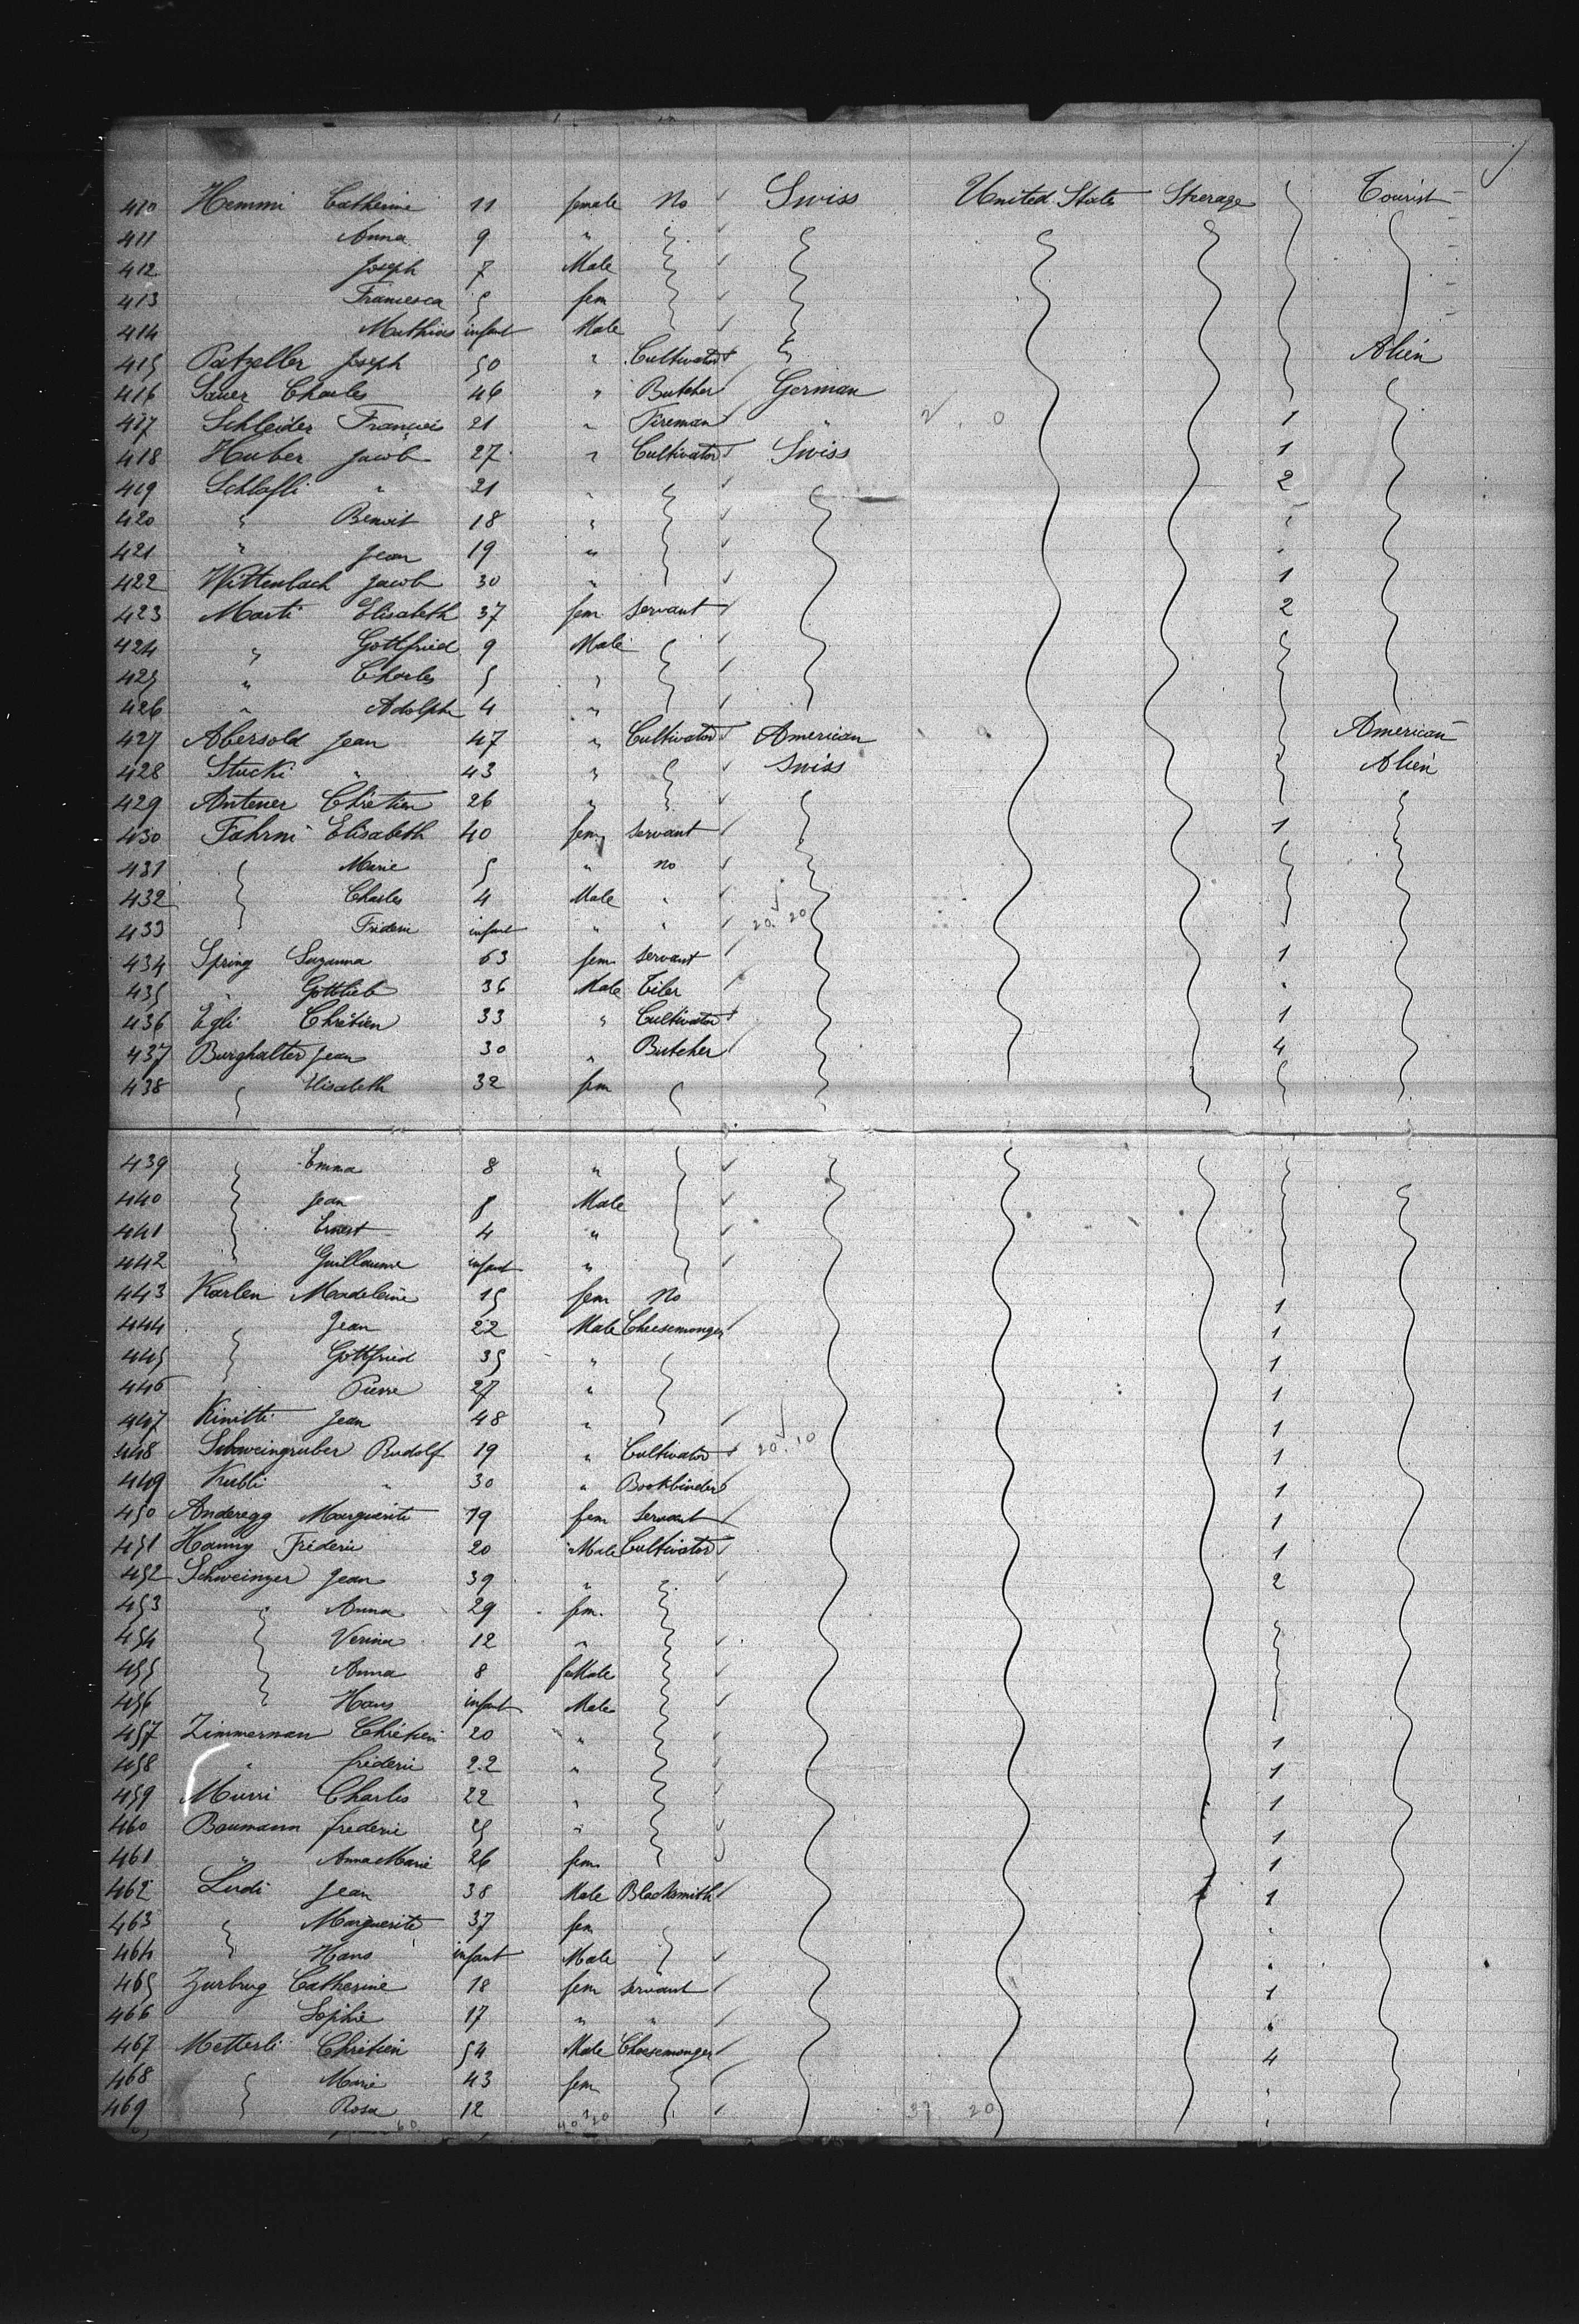 410 Hemmi Catherine 11 female No Swiss United States Steerage Tourist
411 Anna 9 "
412 Joseph 7 Male
413 Francesca 5 fem
414 Mathias infant Male
415 Patzeller Joseph 50 " Cultivator Alien
416 Sauer Charles 46 " Butcher German
417 Schleider François 21 " Fireman " 1
418 Huber Jacob 27 " Cultivator Swiss 1
419 Schlafli " 21 " 2
420 " Benoit 18 " "
421 " Jean 19 " "
422 Wittenbach Jacob 30 " 1
423 Marti Elisabeth 37 fem servant 2
424 " Gottfried 9 Male
425 " Charles 5 "
426 " Adolphe 4 "
427 Abersold Jean 47 " Cultivator American American
428 Stucki " 43 " Swiss Alien
429 Antener Chrétien 26 "
430 Fahrni Elisabeth 40 fem servant 1
431 Marie 5 " no
432 Charles 4 Male "
433 Frideric infant " " 20. 20
434 Spring Suzanna 63 fem servant 1
435 " Gottlieb 36 Male Tiler "
436 Egli Chrétien 33 " Cultivator 1
437 Burghalter Jean 30 " Butcher 4
438 Elisabeth 32 fem
439 Emma 8 "
440 Jean Male
441 Ernest 4 "
442 Guillaume infant "
443 Karlen Madeleine 15 fem No 1
444 Jean 22 Male Cheesemonger 1
445 Gottfried 35 " 1
446 Pierre 27 " 1
447 Kinitti Jean 48 " 1
448 Schweingruber Rudolf 19 " Cultivator 20. 10 1
449 Kubli " 30 " Bookbinder 1
450 Anderegg Marguerite 19 fem servant 1
451 Hanny Frideric 20 Male Cultivator 1
452 Schweinzer Jean 39 " 2
453 Anna 29 fem.
454 Verina 12 "
455 Anna 8 feMale
456 Hans infant Male
457 Zimmerman Chrétien 20 " 1
458 " frideric 22 " 1
459 Murri Charles 22 " 1
460 Baumann frederic 25 " 1
461 " Anna Marie 26 fem 1
462 Ludi Jean 38 Male Blacksmith 1
463 Marguerite 37 fem "
464 Hans infant Male "
465 Zurbrug Catherine 18 fem servant 1
466 Sophie 17 " " "
467 Metterli Chrétien 54 Male Cheesemonger 4
468 Marie 43 fem "
469 Rosa 12 " 20 "